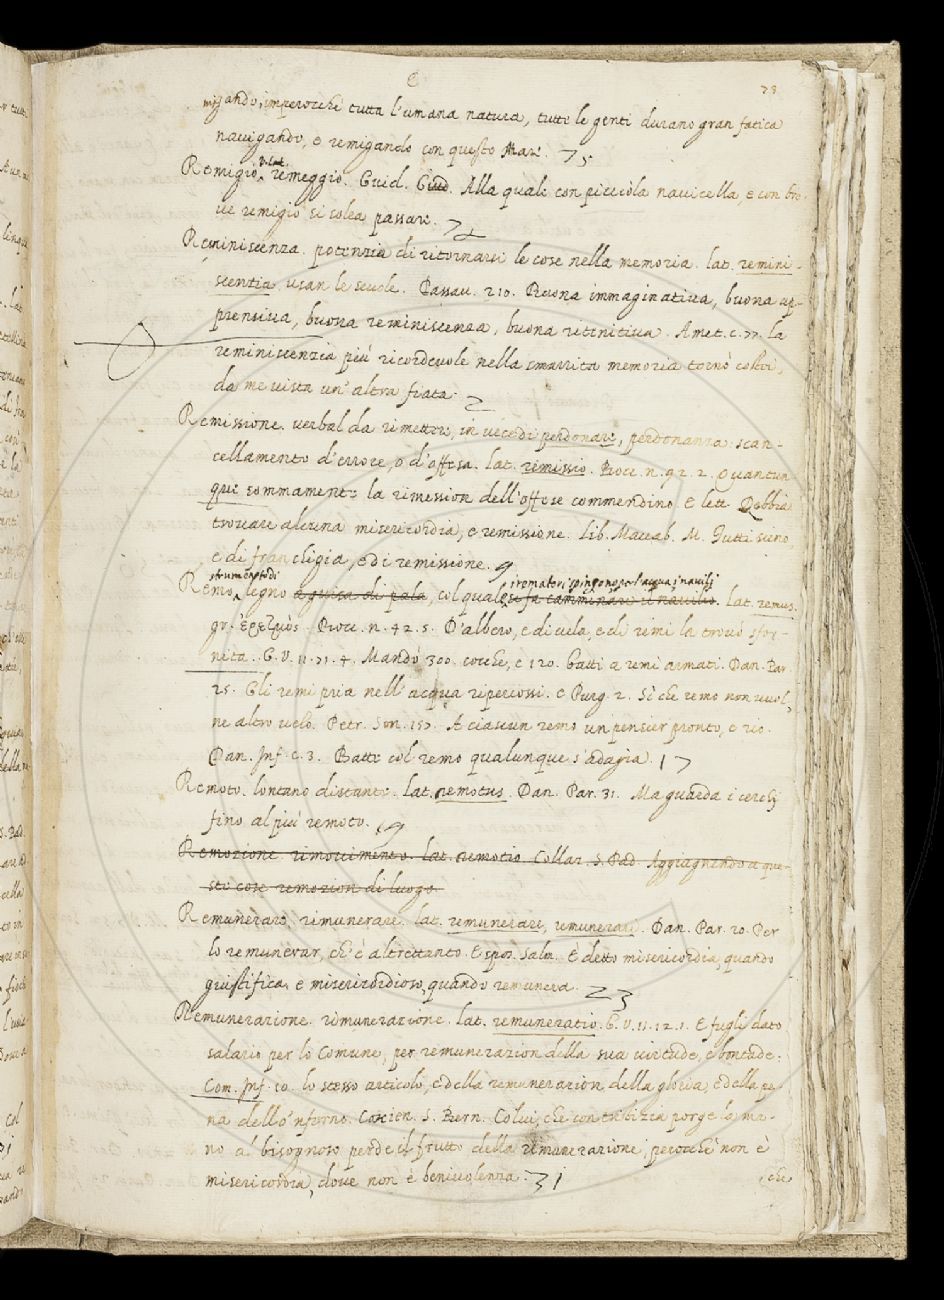 e
78
migando, imperocchè tutta l'umana natura, tutte le genti durano gran fatica
navigando, e remigando con questo Mar. 75
Remigio, v. lat. remeggio. Guid. Giud. Alla quale con piccola navicella, e con bre-
ve remigio si solea passare.
Reminiscenza. potenzia di ritornarsi le cose nella memoria. lat. remini-
scentia usan le scuole. Passav. 210. Buona immaginativa, buona ap-
prensiva, buona reminiscenza, buona ritenitiva. Amet. c. 77. la
reminiscenzia più ricordevole nella smarrita memoria tornò colei,
da me vista un'altra fiata. 2
Remissione. verbal da rimettere, in vece di perdonare, perdonanza. scan-
cellamento d'errore, o d'offesa. lat. remissio. Bocc. n. 92. 2. Quantun
que sommamente la rimession dell'offese commendino. E lett. Debbia
trovare alcuna misericordia, e remissione. lib. Maccab. M. Tutti sieno
e di franchigia, e di remissione. 9
strumento di i rematori spingono per l'acqua i navilj
Remo, legno a guisa di pala, col quale si fa camminare il navilio. lat. remus.
gr. ἐρετμὸς. Bocc. n. 42. 5. D'albero, e di vela, e di remi la trovò sfor-
nita. G. V. 11. 71. 4. Mandò 300. cocche, e 120. batti a remi armati. Dan. Par
25. Gli remi pria nell'acqua ripercossi. e Purg. 2. Sì che remo non vuol,
ne altro velo. Petr. Son. 157. A ciascun remo un pensier pronto, e rio.
Dan. Inf. c. 3. Batte col remo qualunque s'adagia. 17
Remoto. lontano distante. lat. remotus. Dan. Par. 31. Ma guarda i cerchj
fino al più remoto. 19
Remozione. rimovimento. lat. remotio. Collaz. S. Pad. Aggiagnendo a que-
ste cose remozion di luogo
Remunerare. rimunerare. lat. remunerare, remunerari. Dan. Par. 20. Per
lo remunerar, ch'è altrettanto. Espos. Salm. È detto misericordia, quando
giustifica, e misericordioso, quando remunera. 23
Remunerazione. rimunerazione. lat. remuneratio. G. V. 11. 12. 1. E fugli dato
salario per lo Comune, per remunerazion della sua virtude, e bontade.
Com. Inf. 10. lo stesso articolo, e della remunerazion della gloria, e della pe
na dello 'nferno. Coscien. S. Bern. Colui, che con tristizia porge la ma-
no al bisognoso perde il frutto della remunerazione, perocchè non è
misericordia, dove non è benivolenza. 31
che